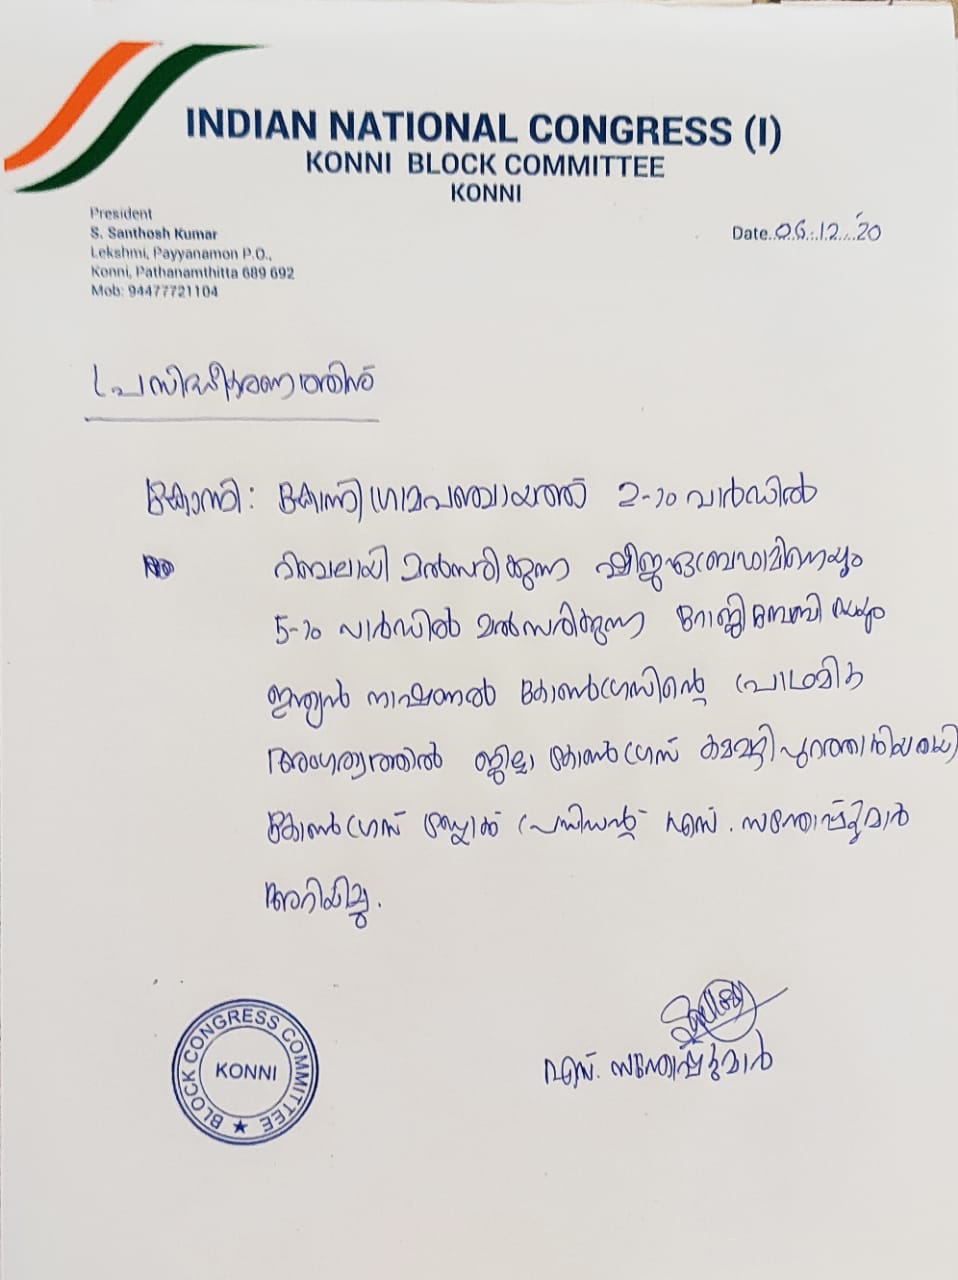 INDIAN NATIONAL CONGRESS (I)
KONNI BLOCK COMMITTEE
KONNI
President
S. Santhosh Kumar
Lekshmi, Payyanamon P.O.,
Konni, Pathanamthitta 689 692
Mob: 94477721104
Date..06..12...'20
പ്രസിദ്ധീകരണത്തിന്
കോന്നി: കോന്നി ഗ്രാമപഞ്ചായത്ത് 2-ാo വാർഡിൽ
റിബലായി മൽസരിക്കുന്ന
5-ാo വാർഡിൽ മൽസരിക്കുന്ന
ഇന്ത്യൻ നാഷണൽ കോൺഗ്രസിന്റെ പ്രാഥമിക
അംഗത്വത്തിൽ ജില്ലാ കോൺഗ്രസ് കമ്മറ്റി പുറത്താക്കിയതായി
കോൺഗ്രസ് ബ്ലോക്ക് പ്രസിഡന്റ് എസ്. സന്തോഷ്കുമാർ
അറിയിച്ചു.
എസ്. സന്തോഷ്കുമാർ
BLOCK CONGRESS COMMITTEE
KONNI